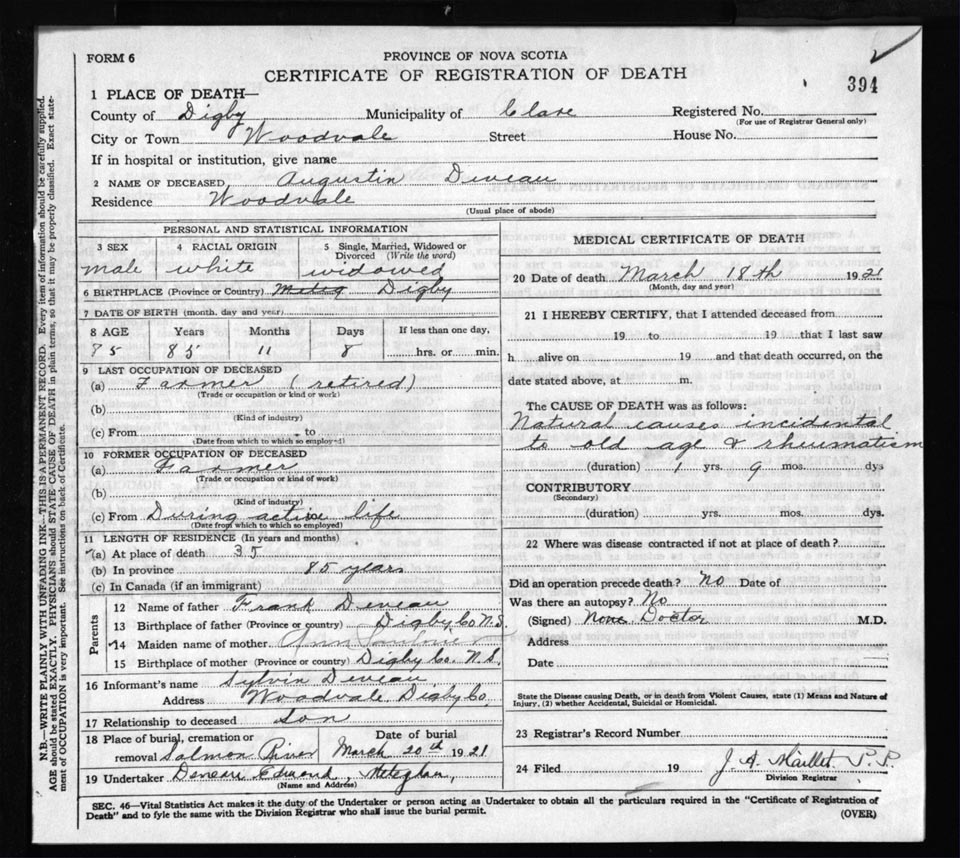 FORM 6
PROVINCE OF NOVA SCOTIA
CERTIFICATE OF REGISTRATION OF DEATH
394
1 PLACE OF DEATH—
County of Digby Municipality of Clare Registered No.
(For use of Registrar General only)
City or Town Woodvale Street House No.
If in hospital or institution, give name
2 NAME OF DECEASED Augustin Deveau
Residence Woodvale
(Usual place of abode)
PERSONAL AND STATISTICAL INFORMATION
3 SEX 4 RACIAL ORIGIN 5 Single, Married, Widowed or Divorced (Write the word)
male white widowed
6 BIRTHPLACE (Province or Country) Meteg Digby
7 DATE OF BIRTH (month, day and year)
8 AGE Years Months Days If less than one day,
85 11 8 hrs. or min.
9 LAST OCCUPATION OF DECEASED
(a) Farmer (retired)
(Trade or occupation or kind or work)
(b)
(Kind of industry)
(c) From to
(Date from which to which so employed)
10 FORMER OCCUPATION OF DECEASED
(a) Farmer
(Trade or occupation or kind of work)
(b)
(Kind of industry)
(c) From During active life
(Date from which to which so employed)
11 LENGTH OF RESIDENCE (In years and months)
(a) At place of death 35
(b) In province 85 years
(c) In Canada (if an immigrant)
Parents
12 Name of father Frank Deveau
13 Birthplace of father (Province or country) Digby Co N.S.
14 Maiden name of mother Ann
15 Birthplace of mother (Province or country) Digby Co. N.S.
16 Informant's name Sylvin Deveau
Address Woodvale, Digby Co.
17 Relationship to deceased Son
18 Place of burial, cremation or removal Salmon River
Date of burial March 20th 1921
19 Undertaker Deveau Edmond, Meteghan,
(Name and Address)
MEDICAL CERTIFICATE OF DEATH
20 Date of death March 18th 1921
(Month, day and year)
21 I HEREBY CERTIFY, that I attended deceased from
19 to 19 that I last saw
h alive on 19 and that death occurred, on the
date stated above, at m.
The CAUSE OF DEATH was as follows:
Natural causes incidental
to old age & rheumatism
(duration) 1 yrs. 9 mos. dys
CONTRIBUTORY
(Secondary)
(duration) yrs. mos. dys.
22 Where was disease contracted if not at place of death?
Did an operation precede death? No Date of
Was there an autopsy? No
(Signed) None Doctor M.D.
Address
Date
State the Disease causing Death, or in death from Violent Causes, state (1) Means and Nature of
Injury, (2) whether Accidental, Suicidal or Homicidal.
23 Registrar's Record Number
24 Filed 19 J. A. Maillet P.P.
Division Registrar
SEC. 46—Vital Statistics Act makes it the duty of the Undertaker or person acting as Undertaker to obtain all the particulars required in the "Certificate of Registration of
Death" and to fyle the same with the Division Registrar who shall issue the burial permit.
(OVER)
N.B.—WRITE PLAINLY WITH UNFADING INK—THIS IS A PERMANENT RECORD. Every item of information should be carefully supplied.
AGE should be stated EXACTLY. PHYSICIANS should STATE CAUSE OF DEATH in plain terms, so that it may be properly classified. Exact state-
ment of OCCUPATION is very important. See instructions on back of Certificate.